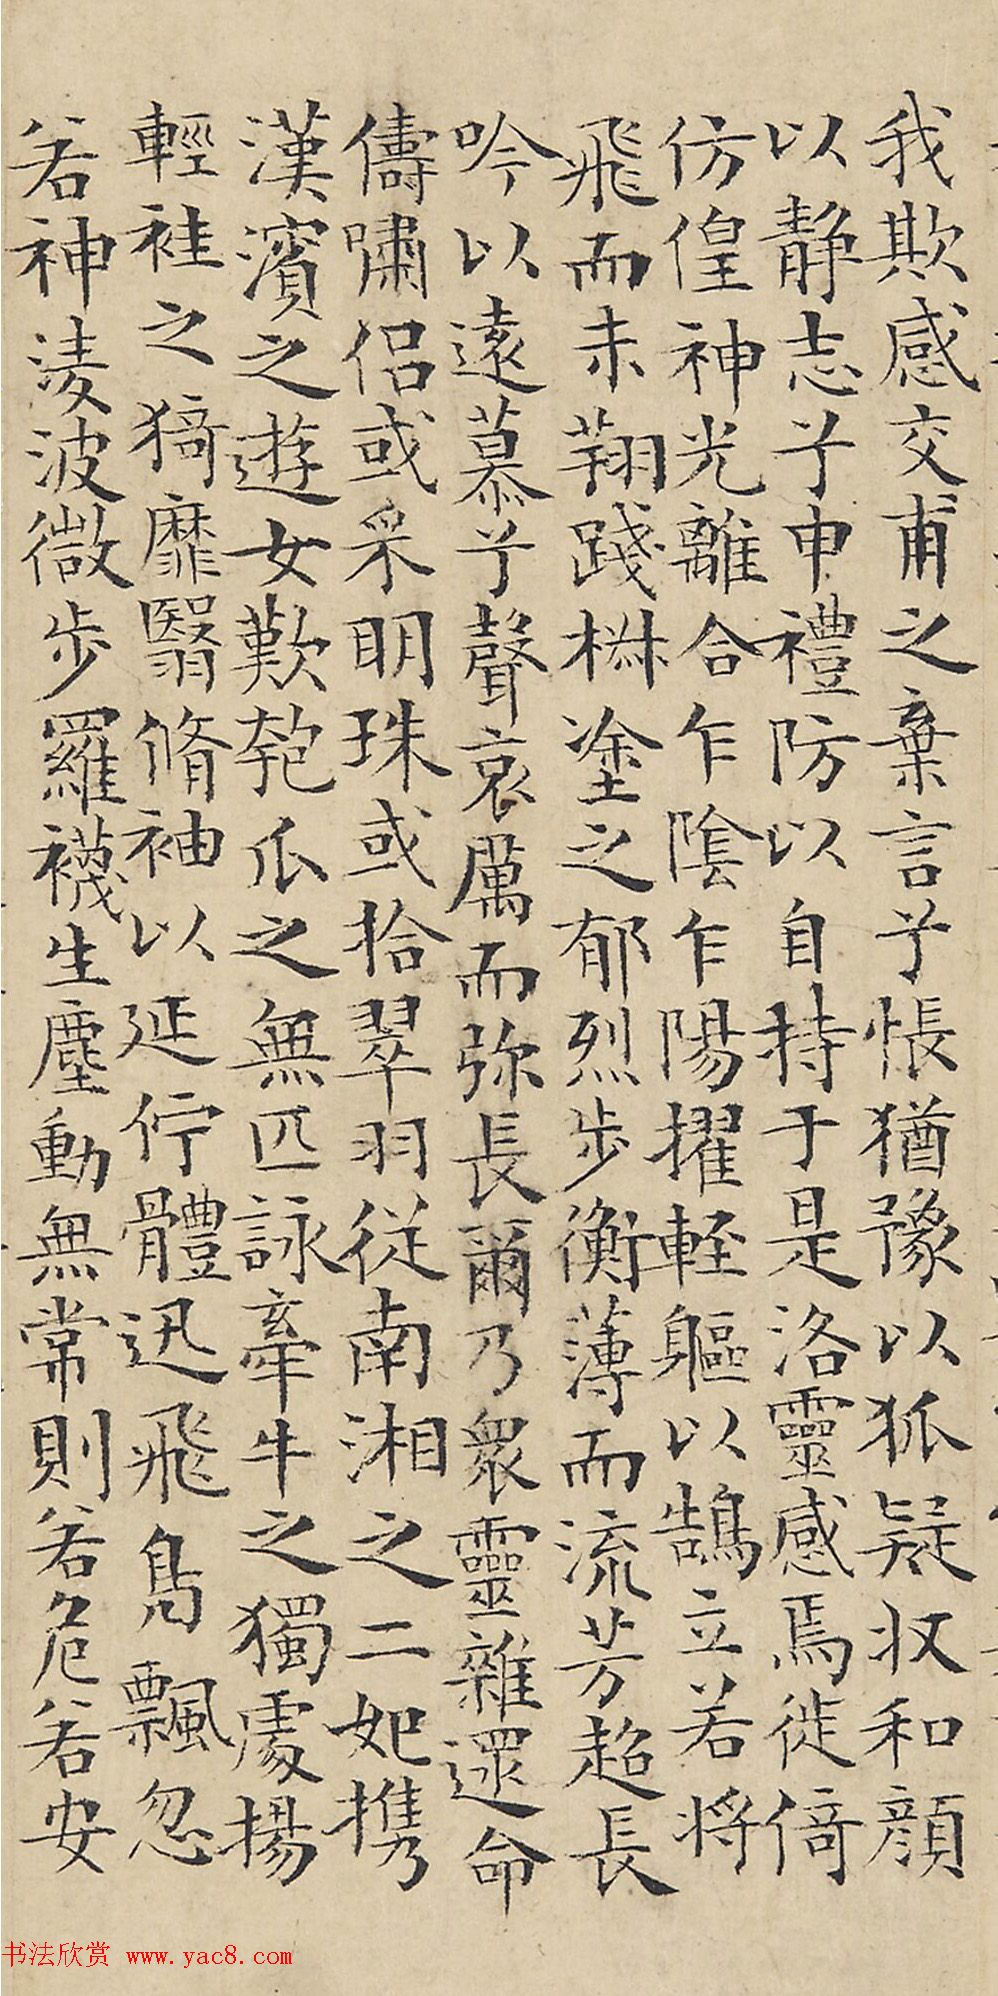 我欺感交甫之棄言兮悵猶豫以狐疑收和顔
以静志兮申禮防以自持于是洛靈感焉徙倚
仿偟神光離合乍陰乍陽擢輕軀以鵠立若將
飛而未翔踐椒塗之郁烈步衡薄而流芳超長
吟以遠慕兮聲哀厲而弥長爾乃衆靈雜遝命
儔嘯侣或采明珠或拾翠羽從南湘之二妃携
漢濱之遊女歎匏瓜之無匹詠牽牛之獨處揚
輕袿之猗靡翳脩袖以延佇體迅飛鳧飄忽
若神淩波微步羅襪生塵動無常則若危若安
书法欣赏 www.yac8.com